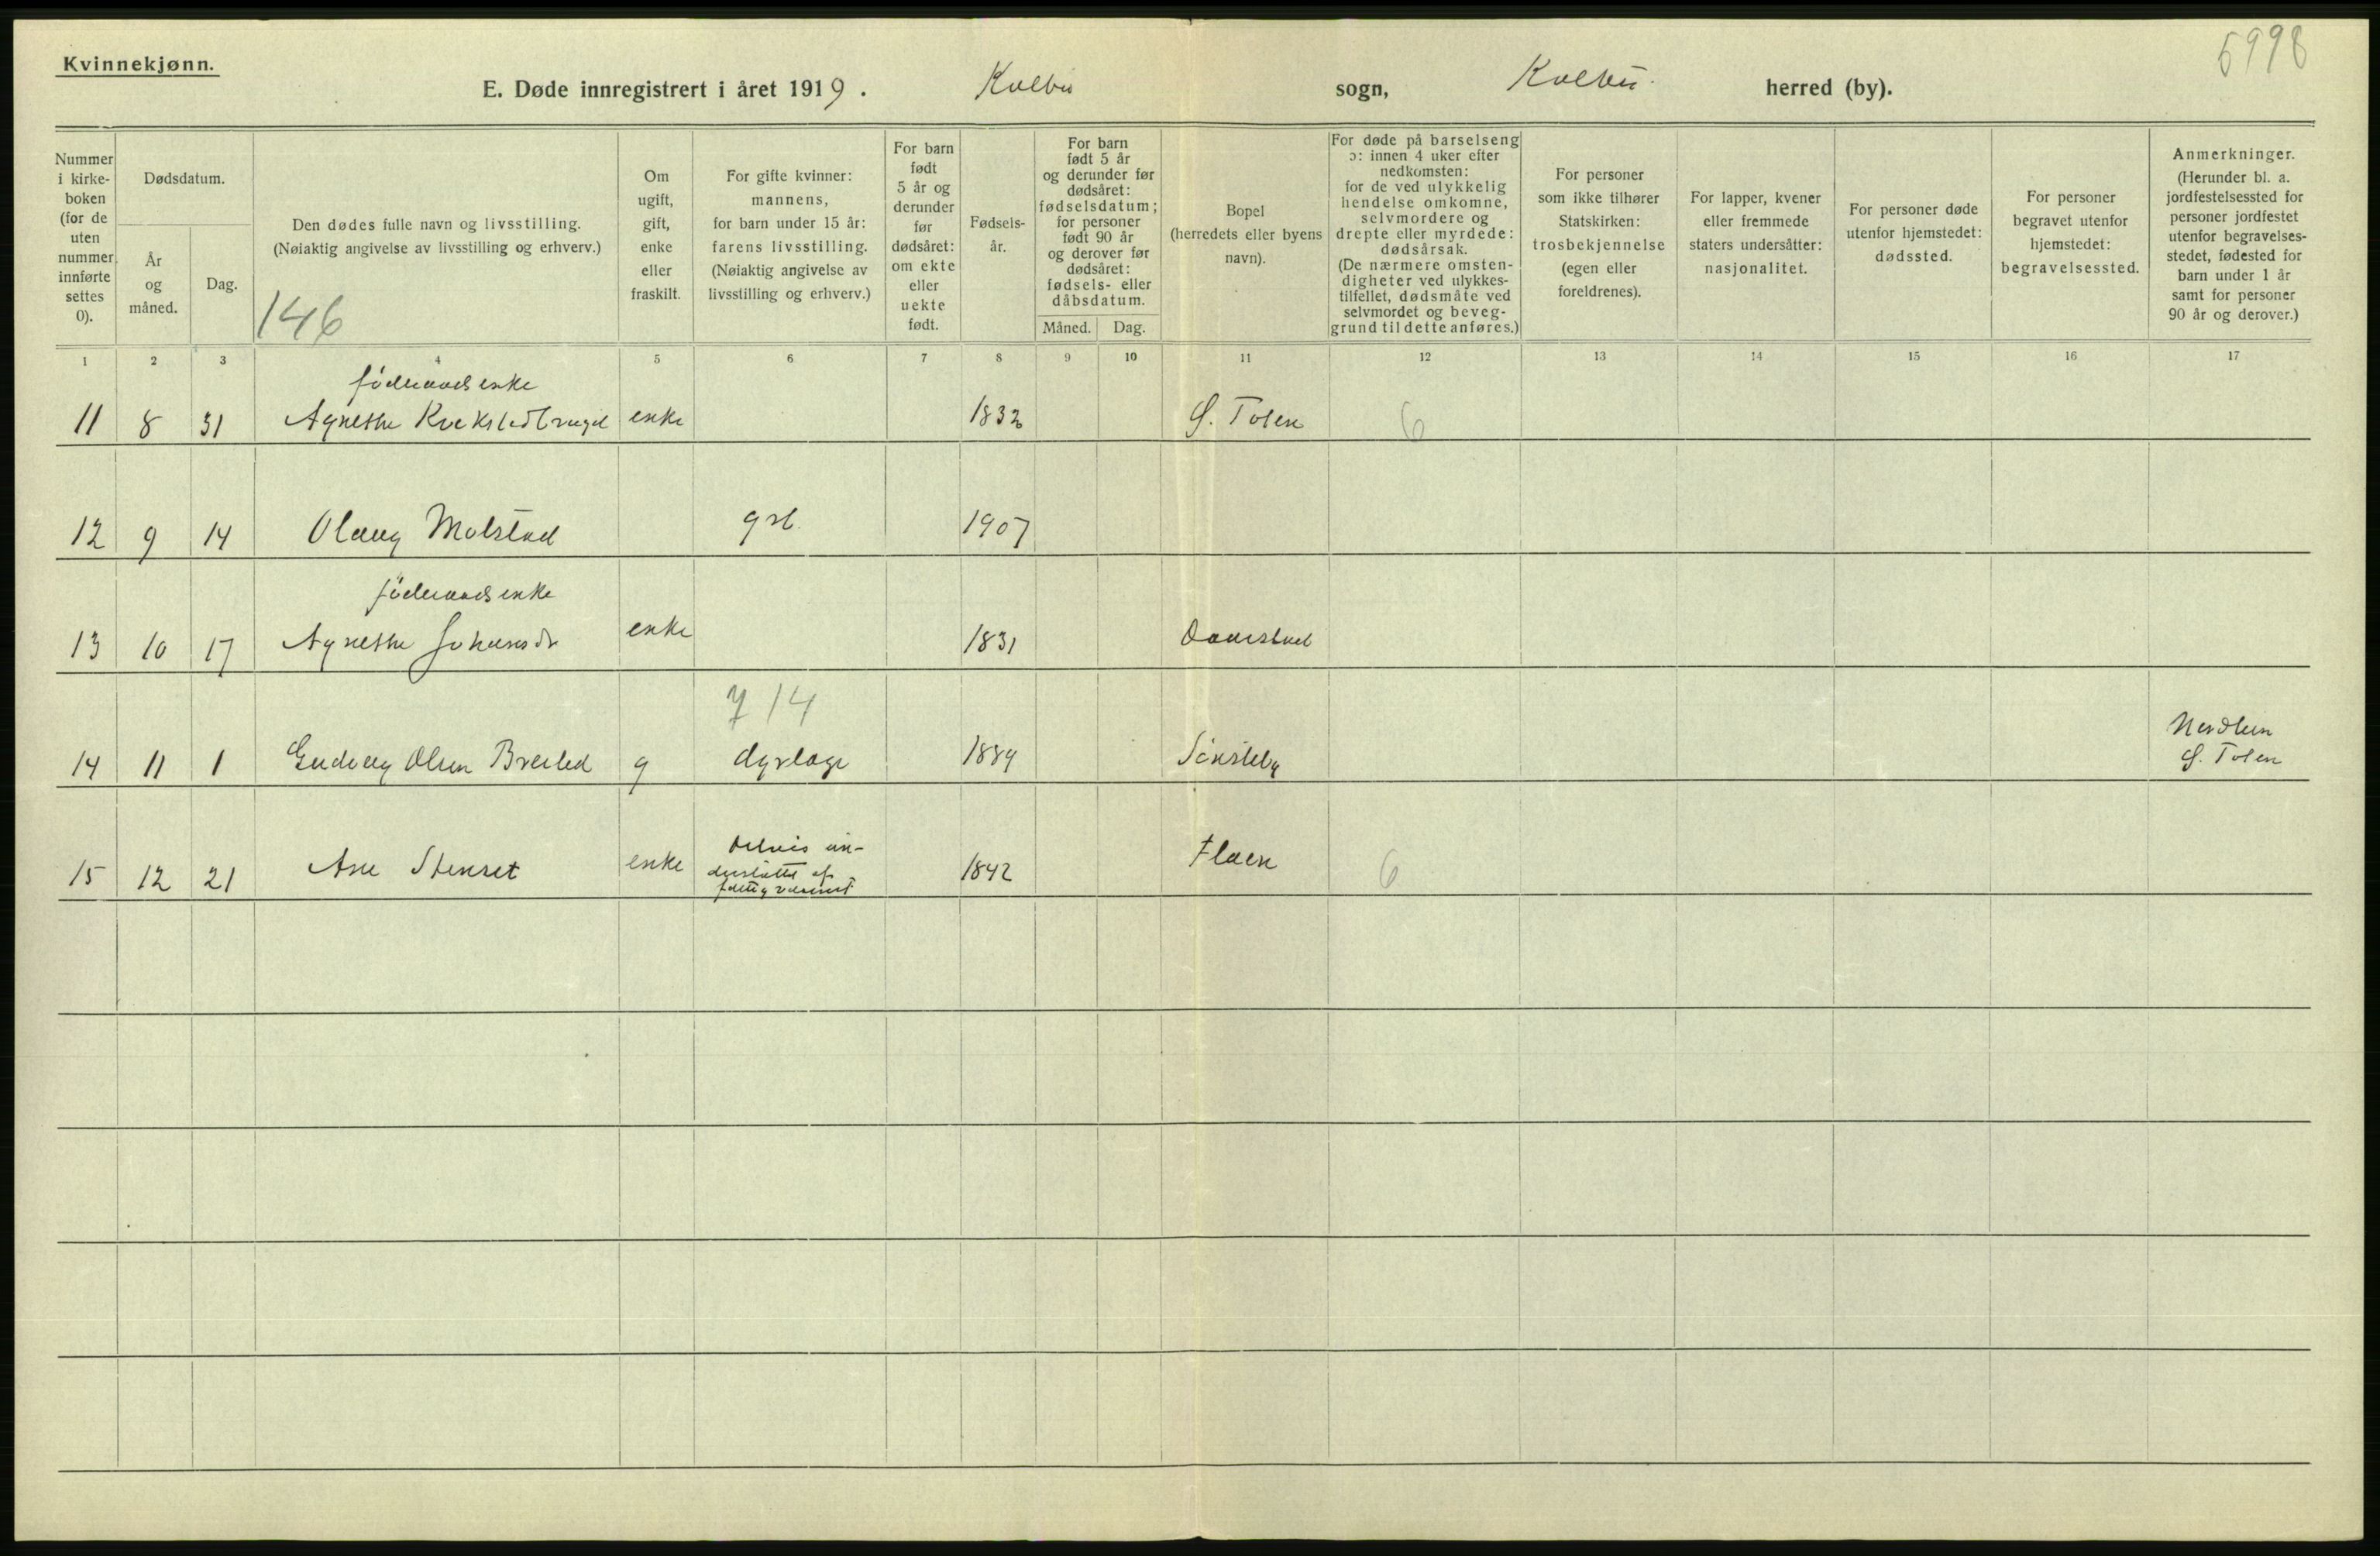 5998
Kvinnekjønn.
E. Døde innregistrert i året 1919. Kolbu sogn, Kolbu herred (by).
Nummer
i kirke-
boken
(for de
uten
nummer
innførte
settes
0).
Dødsdatum.
År
og
måned.
Dag.
Den dødes fulle navn og livsstilling.
(Nøiaktig angivelse av livsstilling og erhverv.)
146
Om
ugift,
gift,
enke
eller
fraskilt.
For gifte kvinner:
mannens,
for barn under 15 år:
farens livsstilling.
(Nøiaktig angivelse av
livsstilling og erhverv.)
For barn
født
5 år og
derunder
før
dødsåret:
om ekte
eller
uekte
født.
Fødsels-
år.
For barn
født 5 år
og derunder før
dødsåret:
fødselsdatum;
for personer
født 90 år
og derover før
dødsåret:
fødsels- eller
dåbsdatum.
Måned. Dag.
Bopel
(herredets eller byens
navn).
For døde på barselseng
ɔ: innen 4 uker efter
nedkomsten:
for de ved ulykkelig
hendelse omkomne,
selvmordere og
drepte eller myrdede:
dødsårsak.
(De nærmere omsten-
digheter ved ulykkes-
tilfellet, dødsmåte ved
selvmordet og beveg-
grund til dette anføres.)
For personer
som ikke tilhører
Statskirken:
trosbekjennelse
(egen eller
foreldrenes).
For lapper, kvener
eller fremmede
staters undersåtter:
nasjonalitet.
For personer døde
utenfor hjemstedet:
dødssted.
For personer
begravet utenfor
hjemstedet:
begravelsessted.
Anmerkninger.
(Herunder bl. a.
jordfestelsessted for
personer jordfestet
utenfor begravelses-
stedet, fødested for
barn under 1 år
samt for personer
90 år og derover.)
1 2 3 4 5 6 7 8 9 10 11 12 13 14 15 16 17
føderaads enke
11 8 31 Agnethe enke 1832 Ø. Toten 6
12 9 14 Olaug Molstad 1907
føderaads enke
13 10 17 Agnethe Johansdr enke 1831
714
14 11 1 Gudveig Olsen g dyrlæge 1889
Ø. Toten
15 12 21 Ane Stenset enke delvis un-
derstøttet af
fattigvæsenet
1842 6